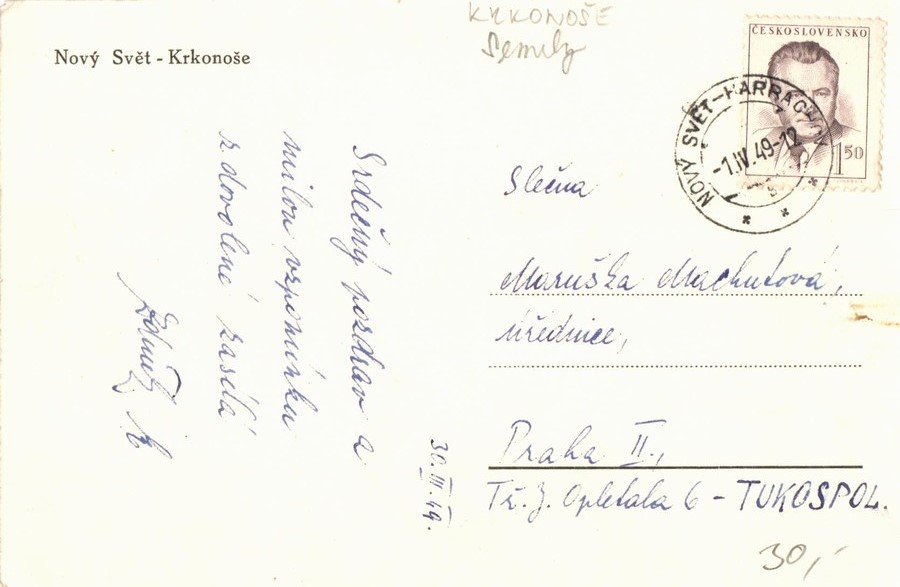 Nový Svět - Krkonoše
KRKONOŠE
Semily
ČESKOSLOVENSKO
1 50
NOVÝ SVĚT-HARRACHOV
-1.IV.49-12
Srdečný pozdrav a
milou vzpomínku
z dovolené zasílá
30.III.49.
Slečna
Maruška Machutová,
úřednice,
Praha II.,
Tř. J. Opletala 6 - TUKOSPOL.
30,-